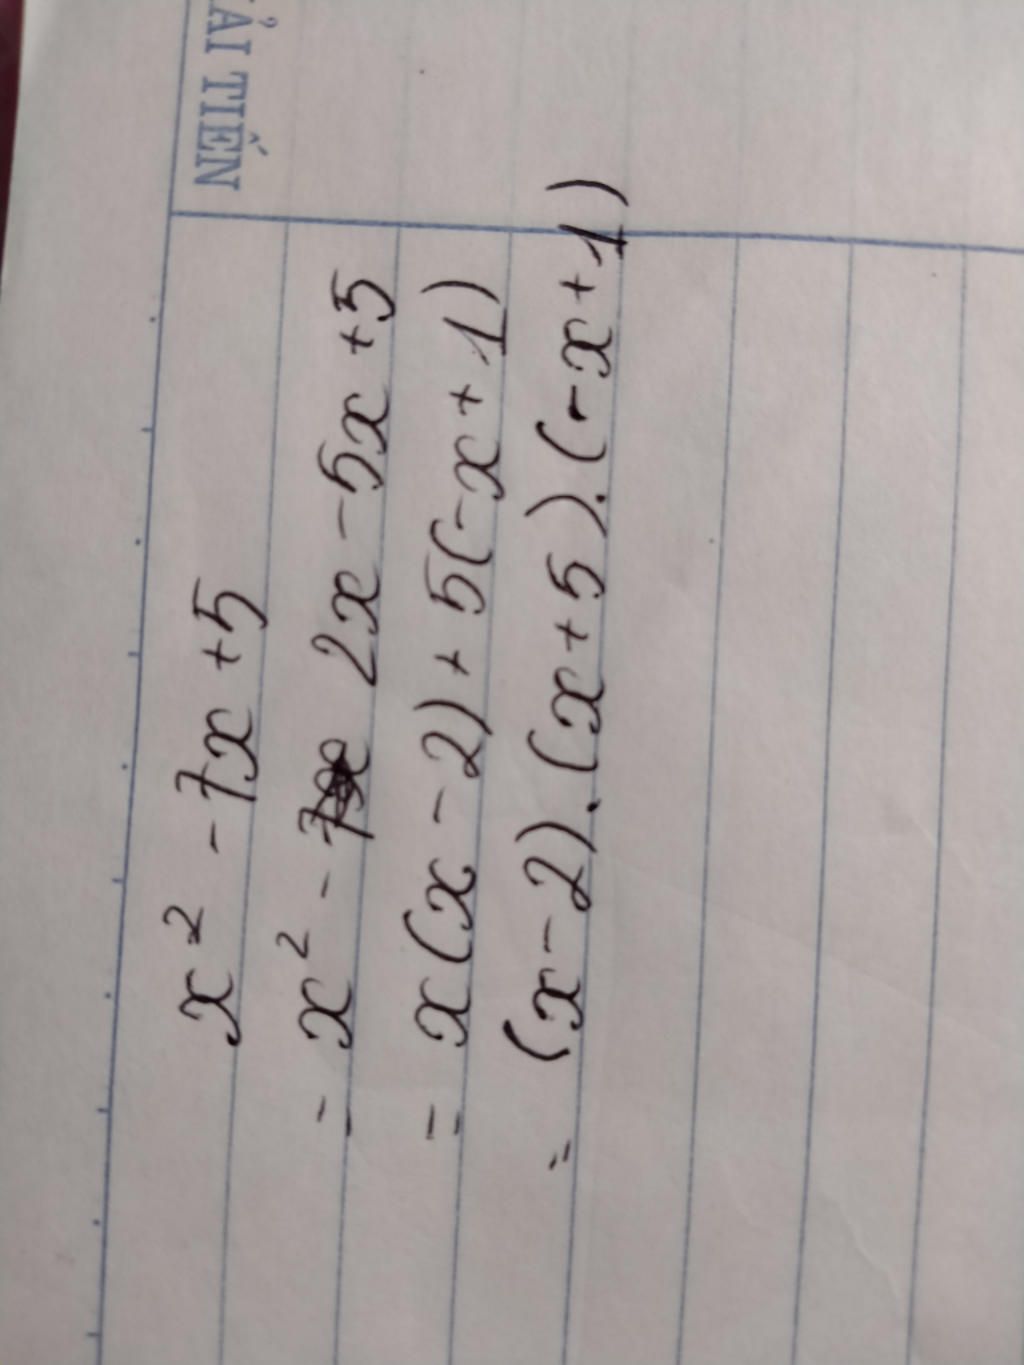 ẢI TIẾN
x² - 7x + 5
= x² - 2x - 5x + 5
= x(x - 2) + 5(-x + 1)
= (x - 2).(x + 5).(-x + 1)